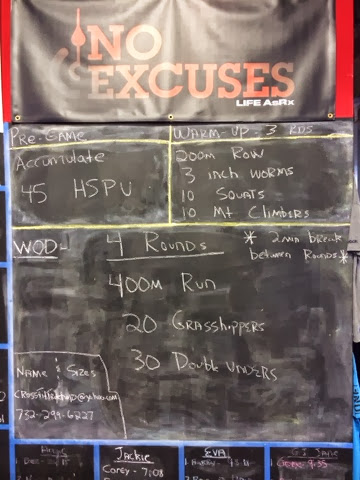 NO
EXCUSES
LIFE AsRx
Pre-Game
Accumulate
45 HSPU
Warm-Up - 3 RDS
200m Row
3 inch worms
10 Squats
10 Mt Climbers
WOD-
4 Rounds
* 2min break
between Rounds *
400m Run
20 Grasshoppers
30 Double unders
Name & Sizes
732-299-6227
Jackie
Corey - 7:08
Eva
G.I. Jane